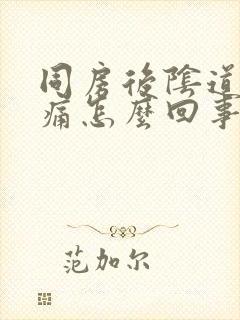 同房後陰道
痛怎麼回事
范加尔